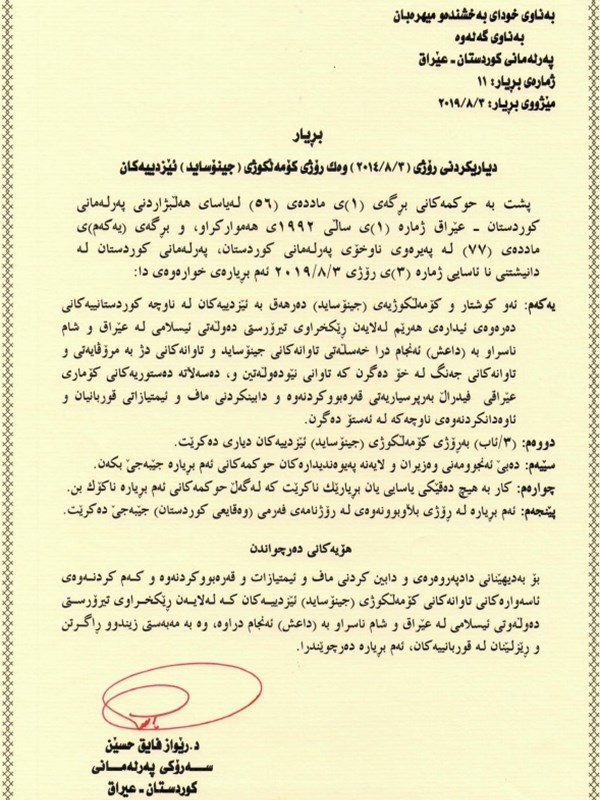 بەناوی خودای بەخشندەو میهرەبان
بەناوی گەلەوە
پەرلەمانی کوردستان - عێراق
ژمارەی بڕیار: ١١
مێژووی بڕیار: ٢٠١٩/٨/٣
بڕیار
دیاریکردنی رۆژی (٢٠١٤/٨/٣) وەك رۆژی کۆمەڵکوژی (جینۆساید) ئێزدییەکان
پشت بە حوکمەکانی بڕگەی (١)ی ماددەی (٥٦) لەیاسای هەڵبژاردنی پەرلەمانی
کوردستان - عێراق ژمارە (١)ی ساڵی ١٩٩٢ی هەموارکراو، و بڕگەی (یەکەم)ی
ماددەی (٧٧) لە پەیڕەوی ناوخۆی پەرلەمانی کوردستان، پەرلەمانی کوردستان لە
دانیشتنی نا ئاسایی ژمارە (٣)ی رۆژی ٢٠١٩/٨/٣ ئەم بڕیارەی خوارەوەی دا:
یەکەم: ئەو کوشتار و کۆمەڵکوژیەی (جینۆساید) دەرهەق بە ئێزدییەکان لە ناوچە کوردستانییەکانی
دەرەوەی ئیدارەی هەرێم لەلایەن ڕێکخراوی تیرۆرستی دەوڵەتی ئیسلامی لە عێراق و شام
ناسراو بە (داعش) ئەنجام درا خەسڵەتی تاوانەکانی جینۆساید و تاوانەکانی دژ بە مرۆڤایەتی و
تاوانەکانی جەنگ لە خۆ دەگرن کە تاوانی نێودەوڵەتین و، دەسەلاتە دەستوریەکانی کۆماری
عێراقی فیدراڵ بەرپرسیاریەتی قەرەبووکردنەوە و دابینکردنی ماف و ئیمتیازاتی قوربانیان و
ئاوەدانکردنەوەی ناوچەکە لە ئەستۆ دەگرن.
دووەم: (٣/ئاب) بەڕۆژی کۆمەڵکوژی (جینۆساید) ئێزدییەکان دیاری دەکرێت.
سێیەم: دەبێ ئەنجوومەنی وەزیران و لایەنە پەیوەندیدارەکان حوکمەکانی ئەم بڕیارە جێبەجێ بکەن.
چوارەم: کار بە هیچ دەقێکی یاسایی یان بڕیارێك ناکرێت کە لەگەڵ حوکمەکانی ئەم بڕیارە ناکۆك بن.
پێنجەم: ئەم بڕیارە لە ڕۆژی بڵاوبوونەوەی لە رۆژنامەی فەرمی (وەقایعی کوردستان) جێبەجێ دەکرێت.
هۆیەکانی دەرچواندن
بۆ بەدیهێنانی دادپەروەری و دابین کردنی ماف و ئیمتیازات و قەرەبووکردنەوە و کەم کردنەوەی
ئاسەوارەکانی تاوانەکانی کۆمەڵکوژی (جینۆساید) ئێزدییەکان کە لەلایەن ڕێکخراوی تیرۆرستی
دەوڵەوتی ئیسلامی لە عێراق و شام ناسراو بە (داعش) ئەنجام دراوە، وە بە مەبەستی زیندوو ڕاگرتن
و ڕێزلێنان لە قوربانییەکان، ئەم بڕیارە دەرچوێندرا.
د.رێواز فایق حسێن
ســەرۆکی پەرلەمــانی
کوردستان - عیراق